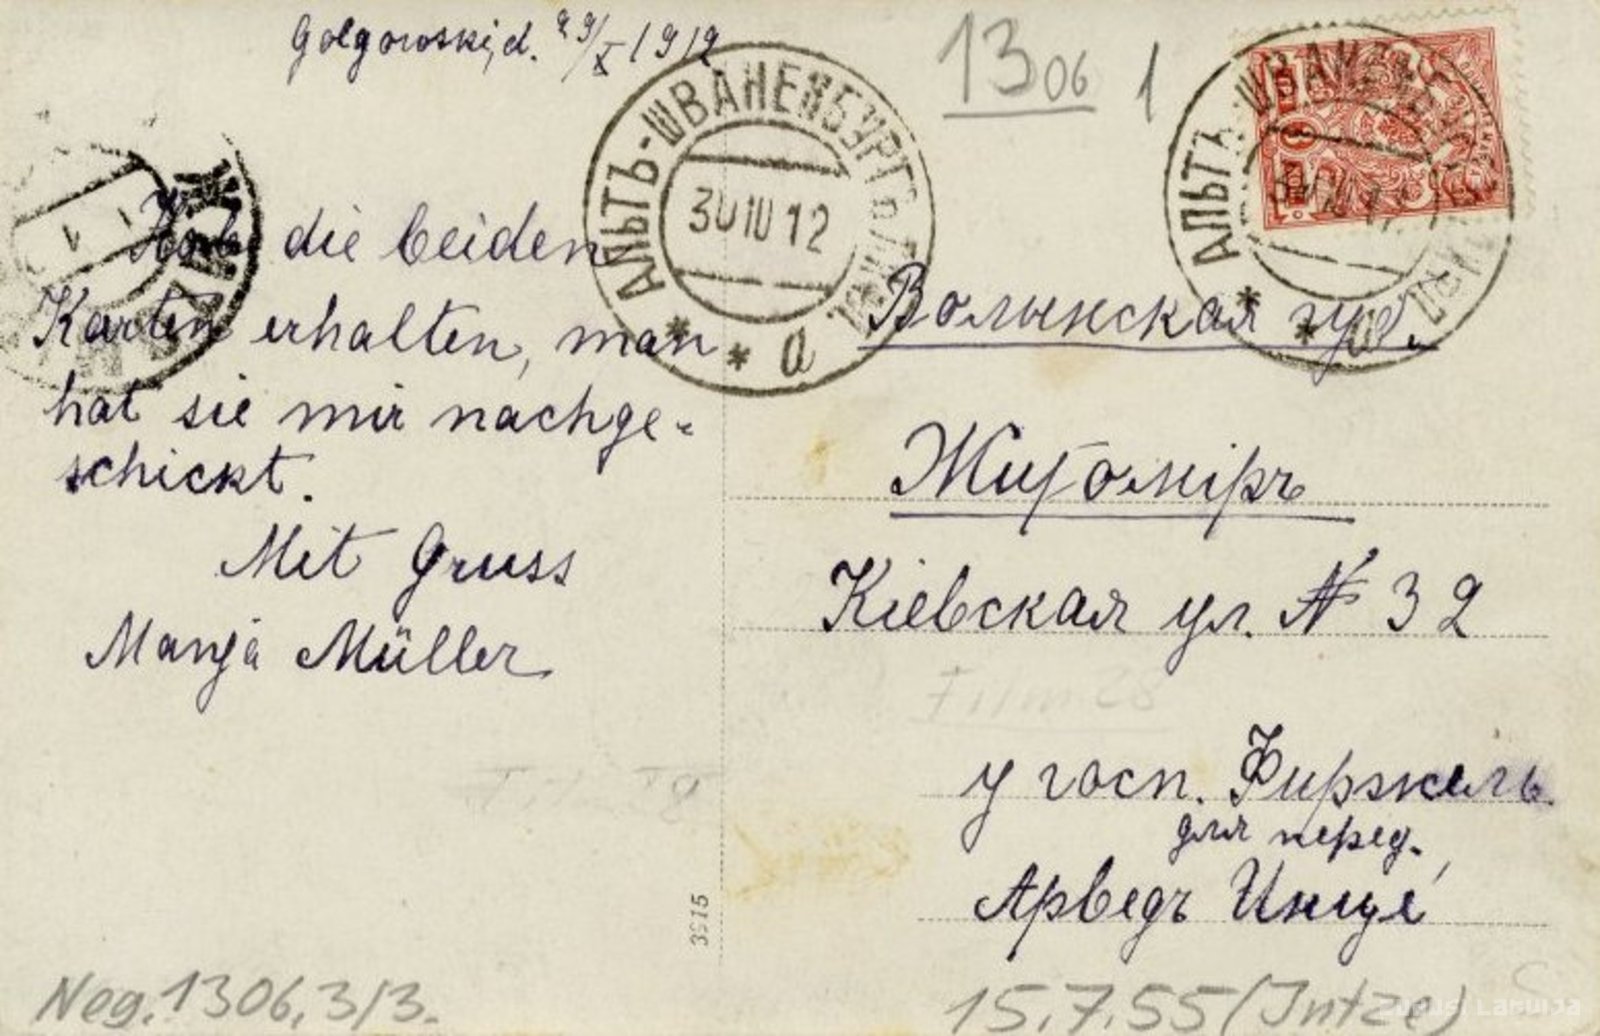 Golgowski, d. 29/X 1912
1306
1
АЛЬТЪ-ШВАНЕНБУРГЪ
30 10 12
a
АЛЬТЪ-ШВАНЕНБУРГЪ
Hab die beiden
Karten erhalten, man
hat sie mir nachge-
schickt.
Mit Gruss
Manja Müller
Волынская губ.
Житоміръ
Кіевская ул. № 32
Film 28
у госп. Фиржель
для перед.
Арведъ Инце
3915
Neg. 1306,3/3.
15.7.55 (Intze)
Zudusi Latvija